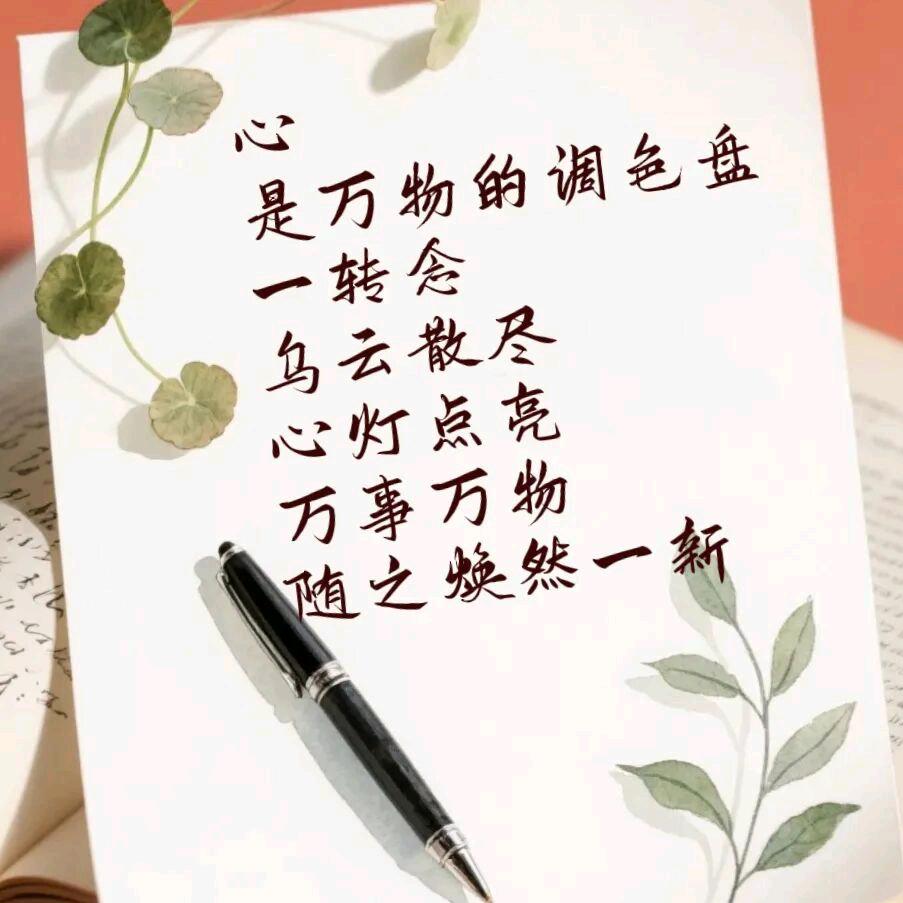 心
是万物的调色盘
一转念
乌云散尽
心灯点亮
万事万物
随之焕然一新